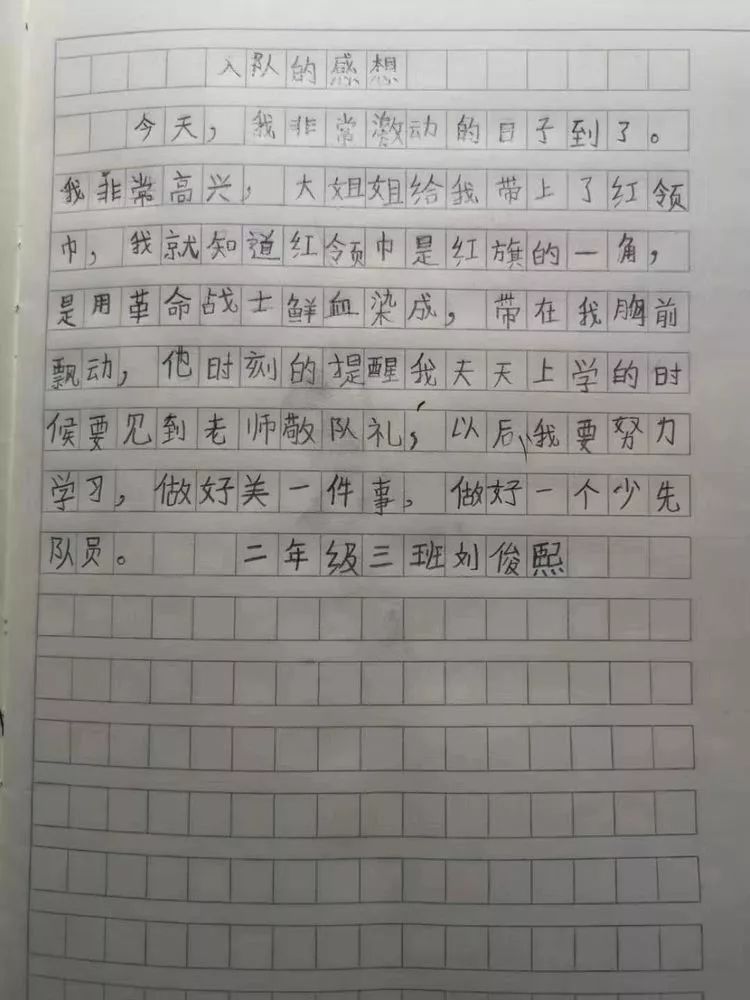 入队的感想
今天，我非常激动的日子到了。
我非常高兴，大姐姐给我带上了红领
巾，我就知道红领巾是红旗的一角，
是用革命战士鲜血染成，带在我胸前
飘动，他时刻的提醒我天天上学的时
候要见到老师敬队礼，以后，我要努力
学习，做好美一件事，做好一个少先
队员。 二年级三班刘俊熙